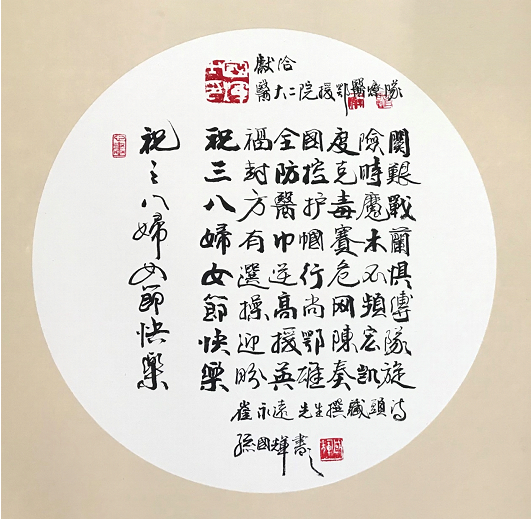 獻给
醫大二院援鄂醫療隊
祝福全國度險關
三封防控克時艱
八方醫护毒魔戰
婦有巾帼賽木蘭
女選逆行危不惧
節操高尚网頻傳
快迎援鄂陳宏隊
樂盼英雄奏凱旋
崔永遠先生撰藏頭詩
孫國輝書
祝三八婦女節快樂